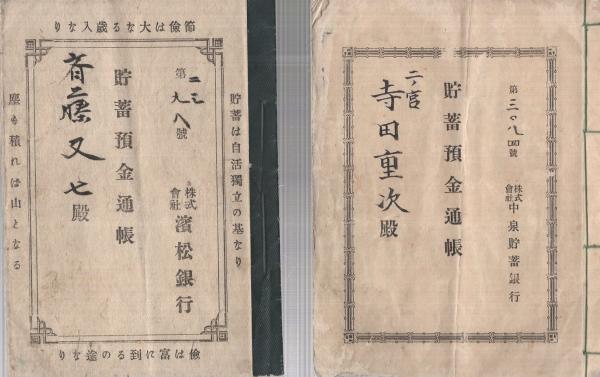 節儉は大なる歳入なり
貯蓄は自活獨立の基なり
第二三九八號
株式會社濱松銀行
貯蓄預金通帳
斉藤又七殿
塵も積れは山となる
儉は富に到るの途なり
第三〇八四號
株式會社中泉貯蓄銀行
貯蓄預金通帳
二宮
寺田重次殿